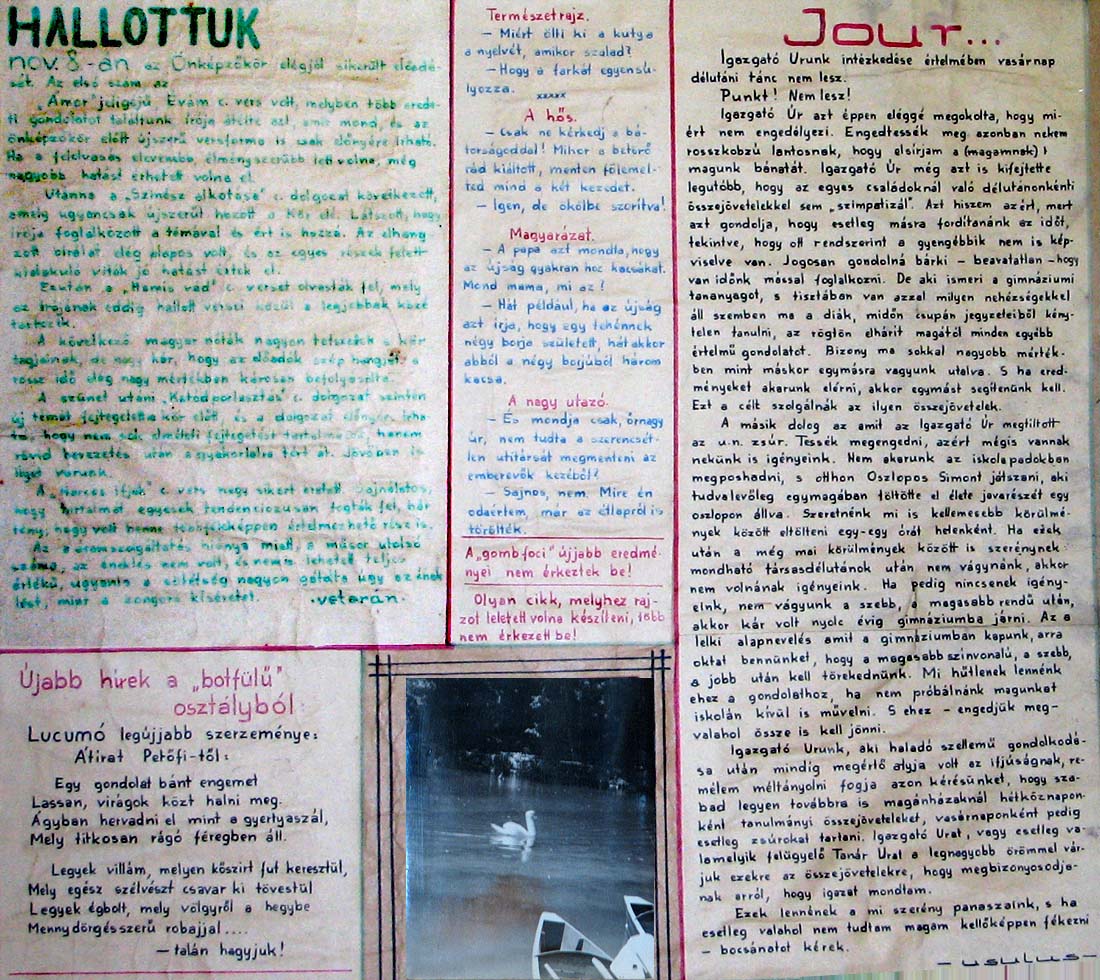 HALLOTTUK
nov. 8-án az Önképzőkör elégjól sikerült előadá-
sát. Az első szám az
„Ámor" juligéjű. Évám c. vers volt, melyben több erede-
ti gondolatot találtunk írója átélte azt, amit mond, és az
önképzőkör előtt újszerű versforma is csak előnyére írható.
Ha a felolvasás elevenebb, élményszerűbb lett volna, még
nagyobb hatást érhetett volna el.
Utánna a „Színész alkotása" c. dolgozat következett,
amely ugyancsak újszerűt hozott a Kör elé. Látszott, hogy
írója foglalkozott a témával és ért is hozzá. Az elhang
zott bírálat elég alapos volt, és az egyes részek felett
kialakuló viták jó hatást értek el.
Ezután a „Hamis vád" c. verset olvasták fel, mely
az írójának eddig hallott versei közül a legjobbak közé
tartozik.
A következő magyar nóták nagyon tetszettek a kör
tagjainak, de nagy kár, hogy az előadók szép hangját a
rossz idő elég nagy mértékben károsan befolyásolta.
A szünet utáni „Katódporlasztás" c. dolgozat szintén
új témát fejtegetett a kör előtt, és a dolgozat előnyére írha
tó, hogy nem sok elméleti fejtegetést tartalmazó, hanem
rövid bevezetés után a gyakorlatra tért át. Jövőben is
ilyet várunk.
A „Harcos ifjak" c. vers nagy sikert aratott. Sajnálatos,
hogy tartalmát egyesek tendenciózusan fogták fel, bár
tény, hogy volt benne többféleképpen értelmezhető rész is.
Az áramszolgáltatás hiánya miatt, a műsor utolsó
száma, az éneklés nem volt, és nem is lehetett teljes
értékű, ugyanis a sötétség nagyon gátolta úgy az ének
lést, mint a zongora kíséretet. · veterán ·
Természetrajz.
– Miért ölti ki a kutya
a nyelvét, amikor szalad?
– Hogy a farkát egyensú-
lyozza.
xxxxx
A hős.
– Csak ne kérkedj a bá-
torságoddal! Mihor a betörő
rád kiáltott, menten fölemel-
ted mind a két kezedet.
– Igen, de ökölbe szorítva!
Magyarázat.
– A papa azt mondta, hogy
az újság gyakran hoz kacsákat.
Mond mama, mi az!
– Hát például, ha az újság
azt írja, hogy egy tehénnek
négy borja született, hát akkor
abból a négy borjúból három
kacsa.
A nagy utazó.
– És mondja csak, őrnagy
úr, nem tudta a szerencsét-
len utitársát megmenteni az
emberevők kezéből?
– Sajnos, nem. Mire én
odaértem, már az étlapról is
törölték.
A „gombfoci" újjabb eredmé-
nyei nem érkeztek be!
Olyan cikk, melyhez raj-
zot lehetett volna készíteni, több
nem érkezett be!
Jour...
Igazgató Urunk intézkedése értelmében vasárnap
délutáni tánc nem lesz.
Punkt! Nem lesz!
Igazgató Úr azt éppen eléggé megokolta, hogy mi-
ért nem engedélyezi. Engedtessék meg azonban nekem
rosszkobzú lantosnak, hogy elsírjam a (magamnak)
magunk bánatát. Igazgató Úr még azt is kifejtette
legutóbb, hogy az egyes családoknál való délutánonkénti
összejövetelekkel sem „szimpatizál". Azt hiszem azért, mert
azt gondolja, hogy esetleg másra fordítanánk az időt,
tekintve, hogy ott rendszerint a gyengébbik nem is kép-
viselve van. Jogosan gondolná bárki – beavatatlan – hogy
van időnk mással foglalkozni. De aki ismeri a gimnáziumi
tananyagot, s tisztában van azzal milyen nehézségekkel
áll szemben ma a diák, midőn csupán jegyzeteiből kény-
telen tanulni, az rögtön elhárít magától minden egyébb
értelmű gondolatot. Bizony ma sokkal nagyobb mérték-
ben mint máskor egymásra vagyunk utalva. S ha ered-
ményeket akarunk elérni, akkor egymást segítenünk kell.
Ezt a célt szolgálnák az ilyen összejövetelek.
A másik dolog az amit az Igazgató Úr megtiltott
az u.n. zsúr. Tessék megengedni, azért mégis vannak
nekünk is igényeink. Nem akarunk az iskolapadokban
megposhadni, s otthon Oszlopos Simont játszani, aki
tudvalevőleg egymagában töltötte el élete javarészét egy
oszlopon állva. Szeretnénk mi is kellemesebb körülmé-
nyek között eltölteni egy-egy órát hetenként. Ha ezek
után a még mai körülmények között is szerénynek
mondható társasdélutánok után nem vágynánk, akkor
nem volnának igényeink. Ha pedig nincsenek igény-
eink, nem vágyunk a szebb, a magasabb rendű után,
akkor kár volt nyolc évig gimnáziumba járni. Az a
lelki alapnevelés amit a gimnáziumban kapunk, arra
oktat bennünket, hogy a magasabb színvonalú, a szebb,
a jobb után kell törekednünk. Mi hűtlenek lennénk
ehez a gondolathoz, ha nem próbálnánk magunkat
iskolán kívül is művelni. S ehez – engedjük meg–
valahol össze is kell jönni.
Igazgató Urunk, aki haladó szellemű gondolkodá-
sa után mindig megértő atyja volt az ifjúságnak, re-
mélem méltányolni fogja azon kérésünket, hogy sza-
bad legyen továbbra is magánházaknál hétköznapon-
ként tanulmányi összejöveteleket, vasárnaponként pedig
esetleg zsúrokat tartani. Igazgató Urat, vagy esetleg va-
lamelyik felügyelő Tanár Urat a legnagyobb örömmel vár-
juk ezekre az összejövetelekre, hogy megbizonyosodja-
nak arról, hogy igazat mondtam.
Ezek lennének a mi szerény panaszaink, s ha
esetleg valahol nem tudtam magam kellőképpen fékezni
– bocsánatot kérek.
– usulus –
Újabb hírek a „botfülű"
osztályból
Lucumó legújjabb szerzeménye:
Átirat Petőfi-től:
Egy gondolat bánt engemet
Lassan, virágok közt halni meg.
Ágyban hervadni el mint a gyertyaszál,
Mely titkosan rágó féregben áll.
Legyek villám, melyen kőszirt fut keresztül,
Mely egész szélvészt csavar ki tövestül
Legyek égbolt, mely völgyről a hegybe
Mennydörgésszerű robajjal....
– talán hagyjuk!